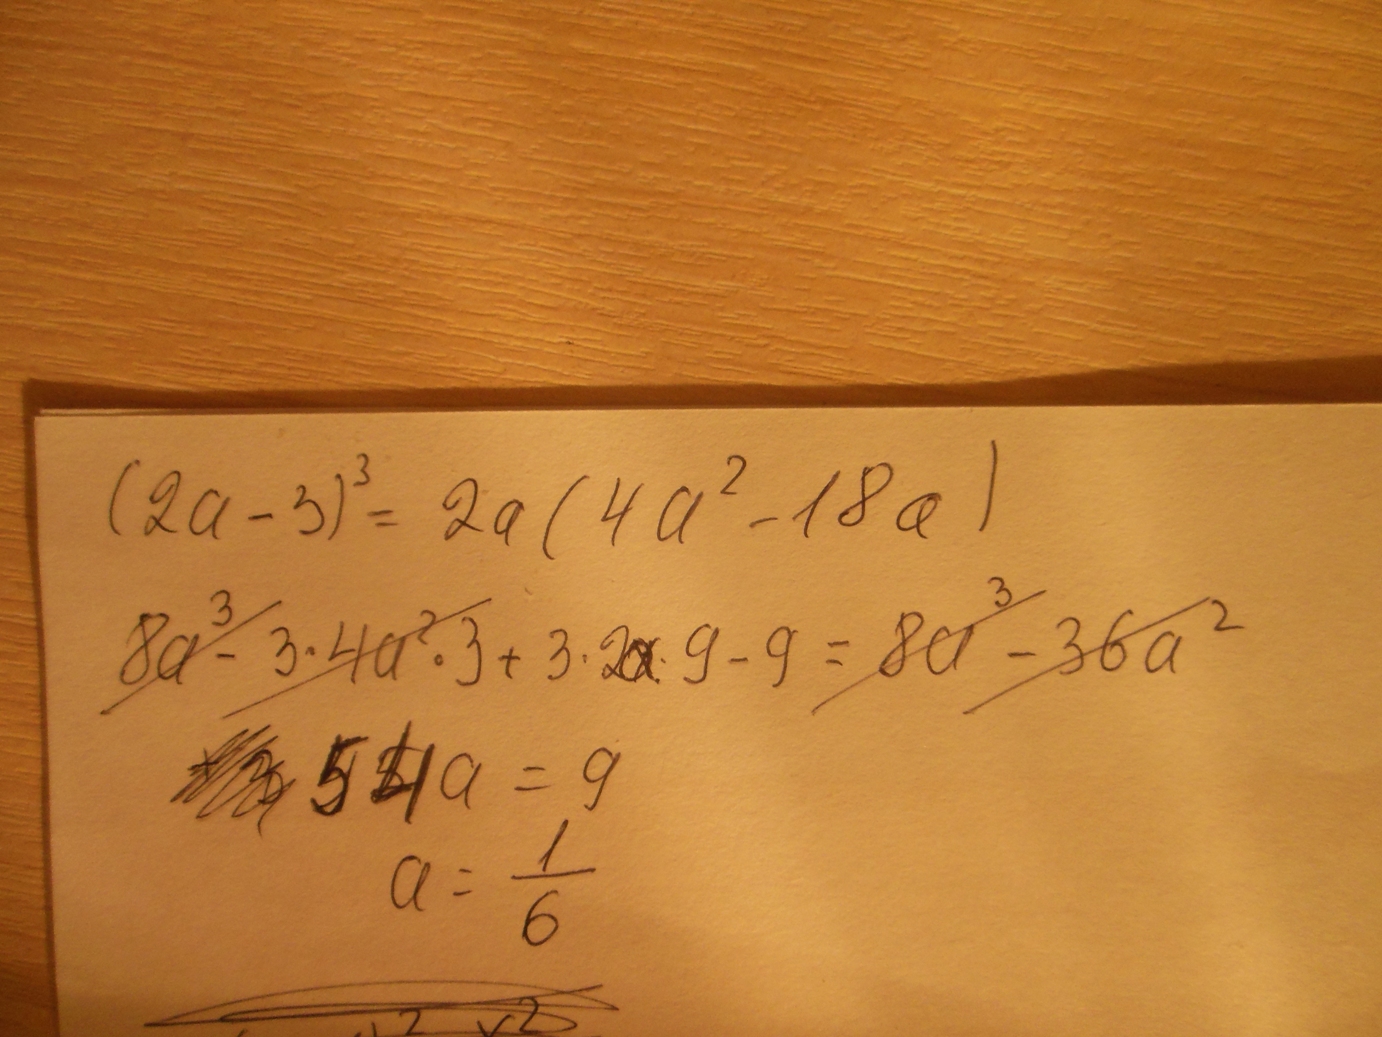 (2a-3)³= 2a(4a²-18a)
8a³- 3·4a²·3+3·2a·9-9= 8a³-36a²
54a=9
a= 1/6